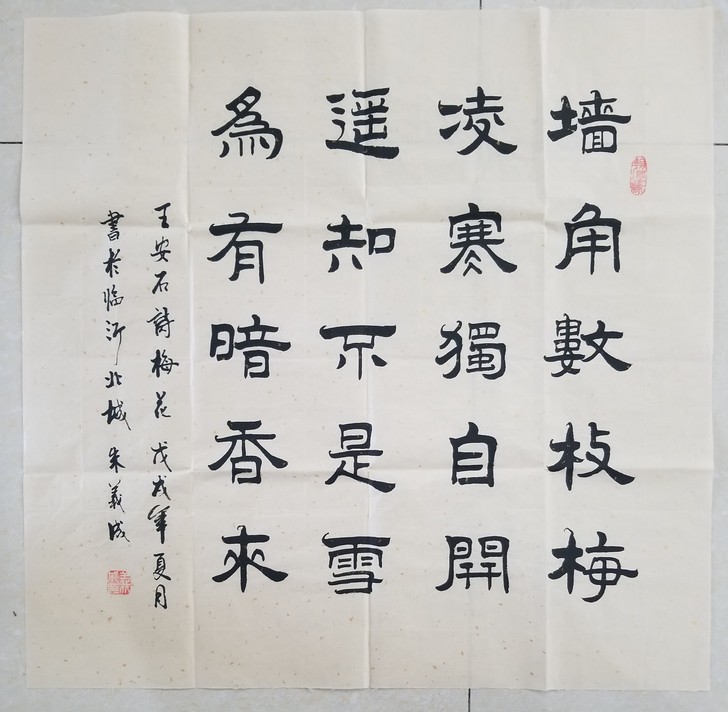 墙角數枝梅
凌寒獨自開
遥知不是雪
為有暗香來
王安石詩梅花 戊戌年夏月
書於臨沂北城 朱義成